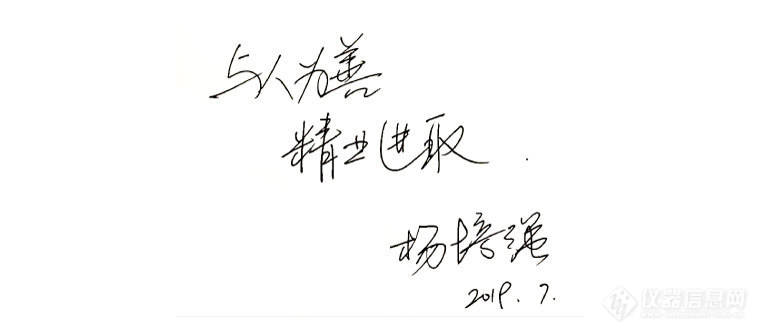 与人为善
精业进取.
杨培强
2019.7.
仪器信息网